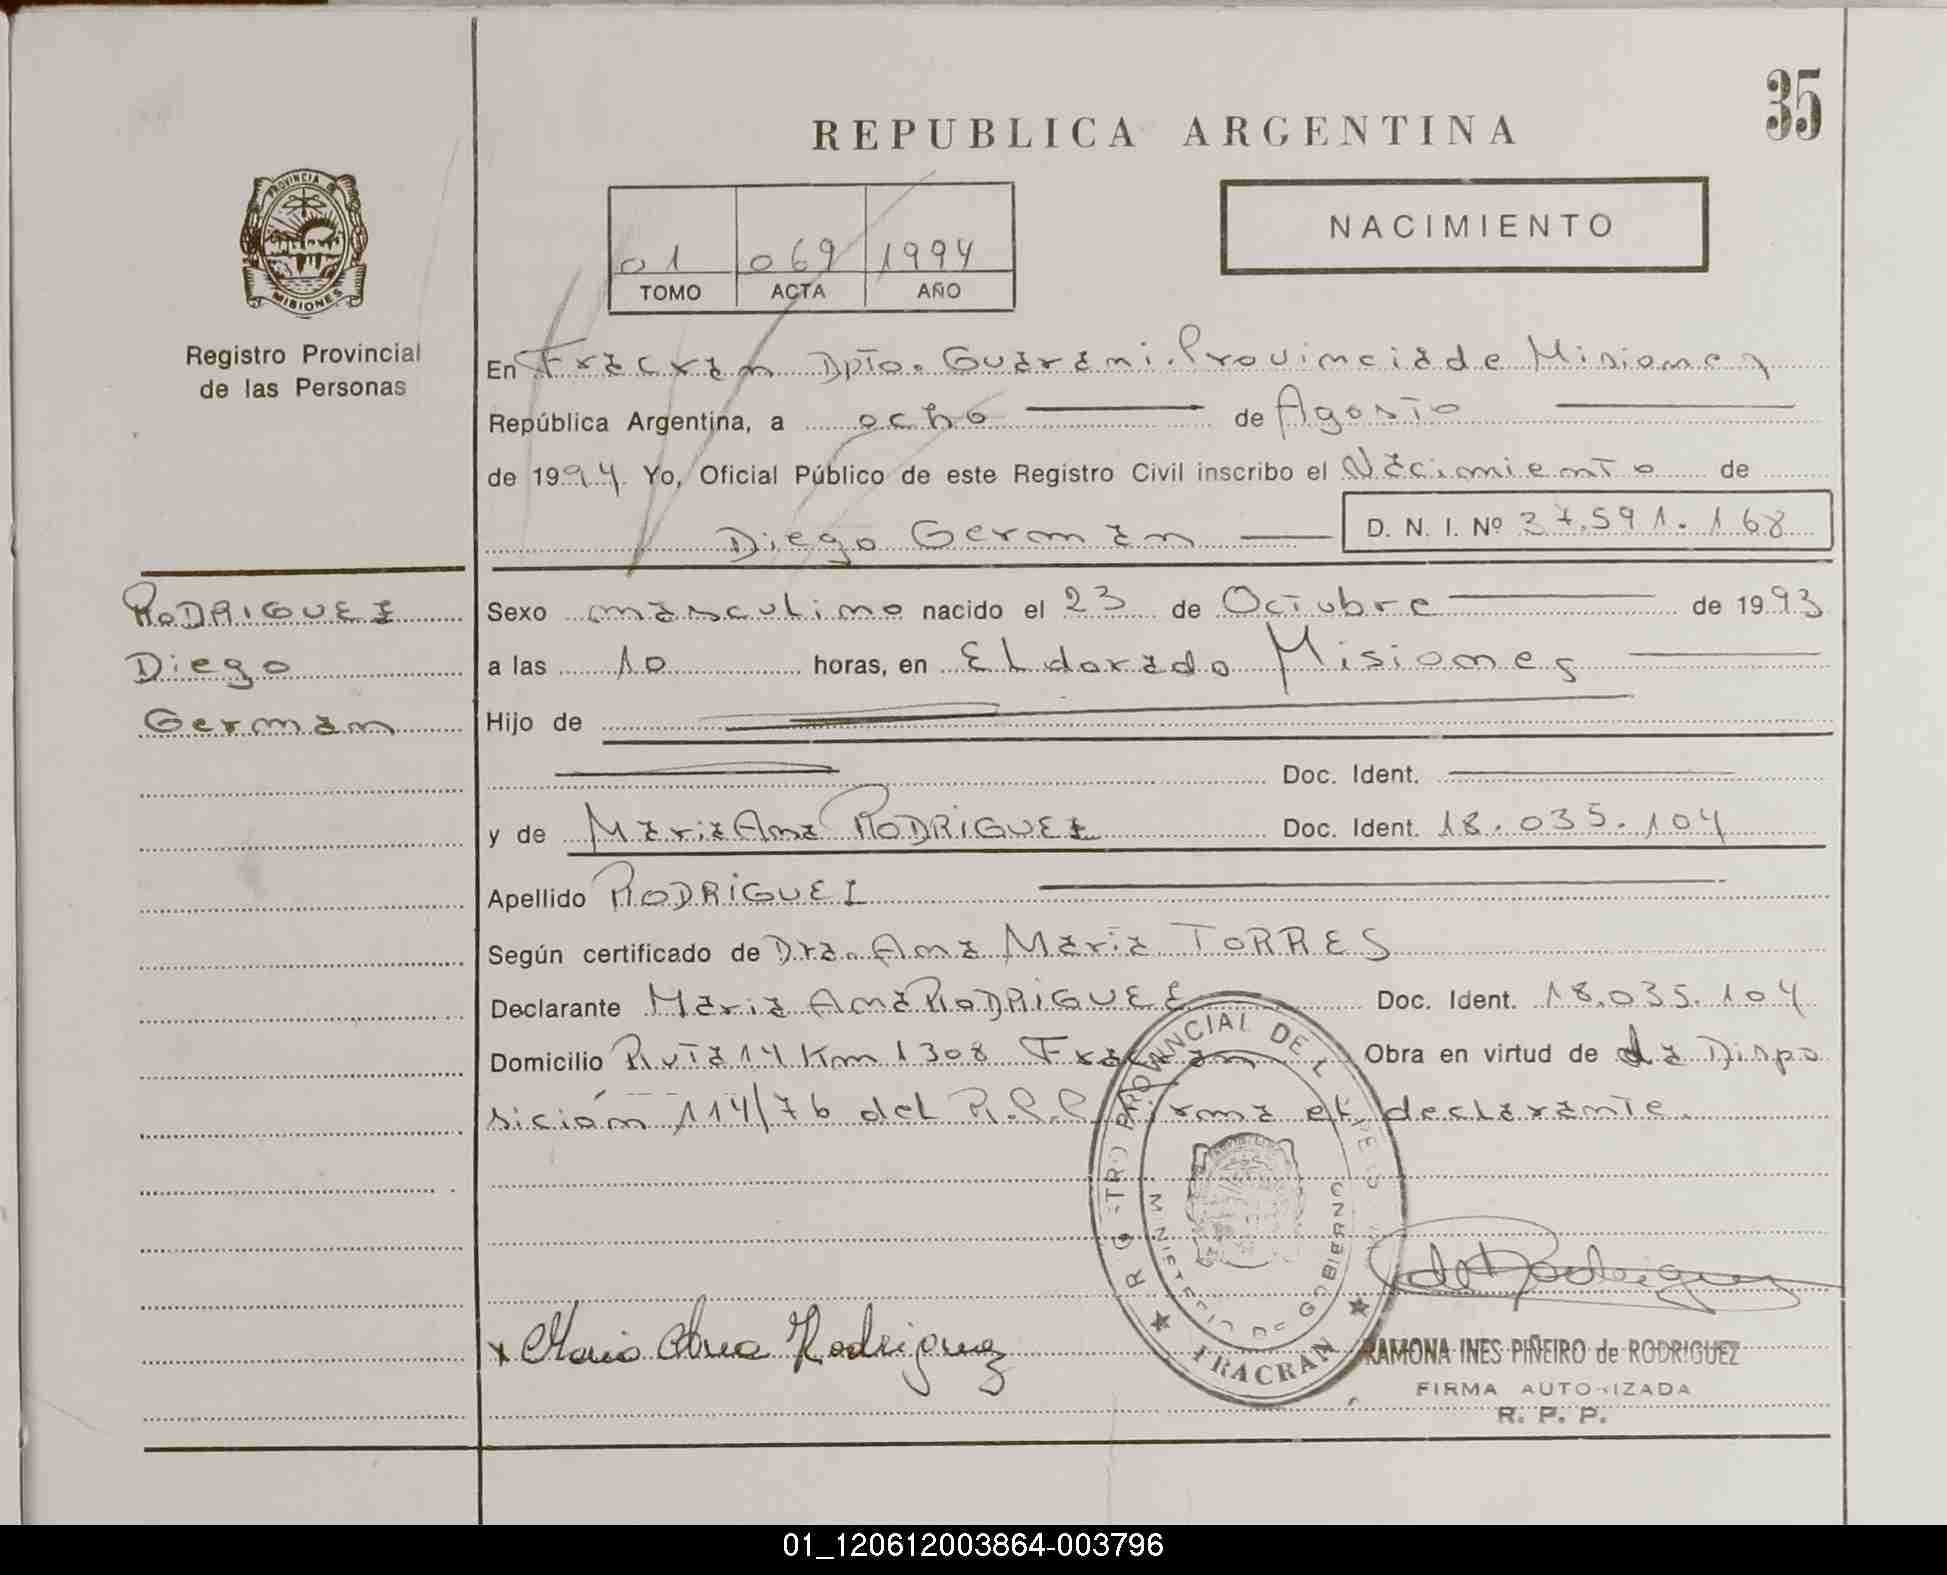 35
REPUBLICA ARGENTINA
NACIMIENTO
PROVINCIA DE
MISIONES
Registro Provincial
de las Personas
01 069 1994
TOMO ACTA AÑO
En Fracran Dpto. Guarani. Provincia de Misiones
República Argentina, a ocho de Agosto
de 1994 Yo, Oficial Público de este Registro Civil inscribo el Nacimiento de
Diego German D. N. I. Nº 37.591.168
RODRIGUEZ
Diego
German
Sexo masculino nacido el 23 de Octubre de 1993
a las 10 horas, en ELdorado Misiones
Hijo de
Doc. Ident.
y de Maria Ana RODRIGUEZ Doc. Ident. 18.035.104
Apellido RODRIGUEZ
Según certificado de Dra. Ana Maria TORRES
Declarante Maria Ana RODRIGUEZ Doc. Ident. 18.035.104
Domicilio Ruta 14 Km 1308 Fracran Obra en virtud de la Dispo
sición 114/76 del R.P.P. Firma el declarante.
PROVINCIAL DE L
MINISTERIO DE GOBIERNO
FRACRAN
x Maria Ana Rodriguez
de Rodriguez
RAMONA INES PIÑEIRO de RODRIGUEZ
FIRMA AUTORIZADA
R. P. P.
01_120612003864-003796